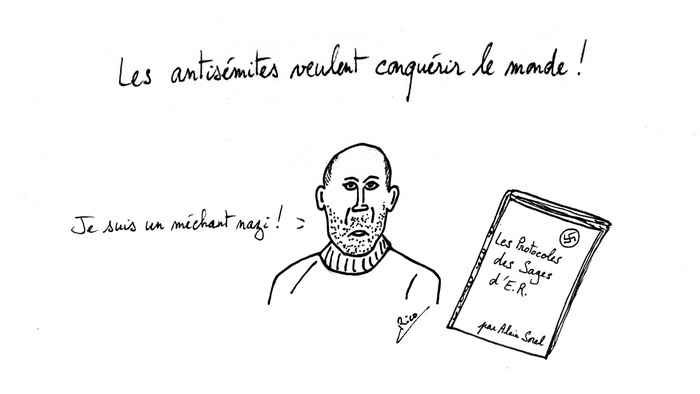 Les antisémites veulent conquérir le monde !
Je suis un méchant nazi !
Les Protocoles
des Sages
d'E.R.
par Alain Soral
Rico